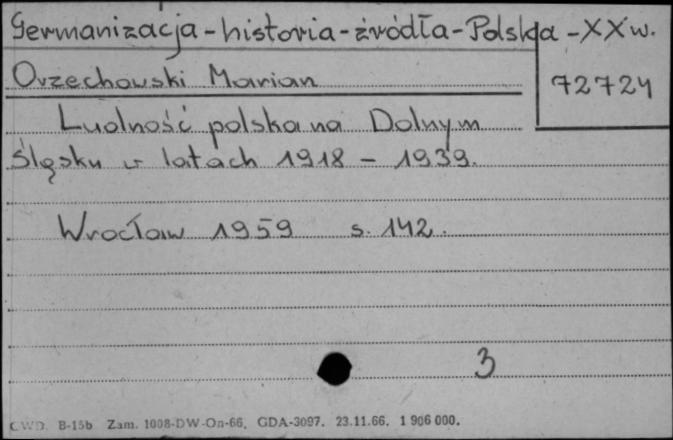 Germanizacja - historia - źródła - Polska - XX w.
Orzechowski Marian
72724
Ludność polska na Dolnym
Śląsku w latach 1918 - 1939.
Wrocław 1959 s. 142.
3
CWD. B-15b Zam. 1008-DW-On-66. GDA-3097. 23.11.66. 1 906 000.